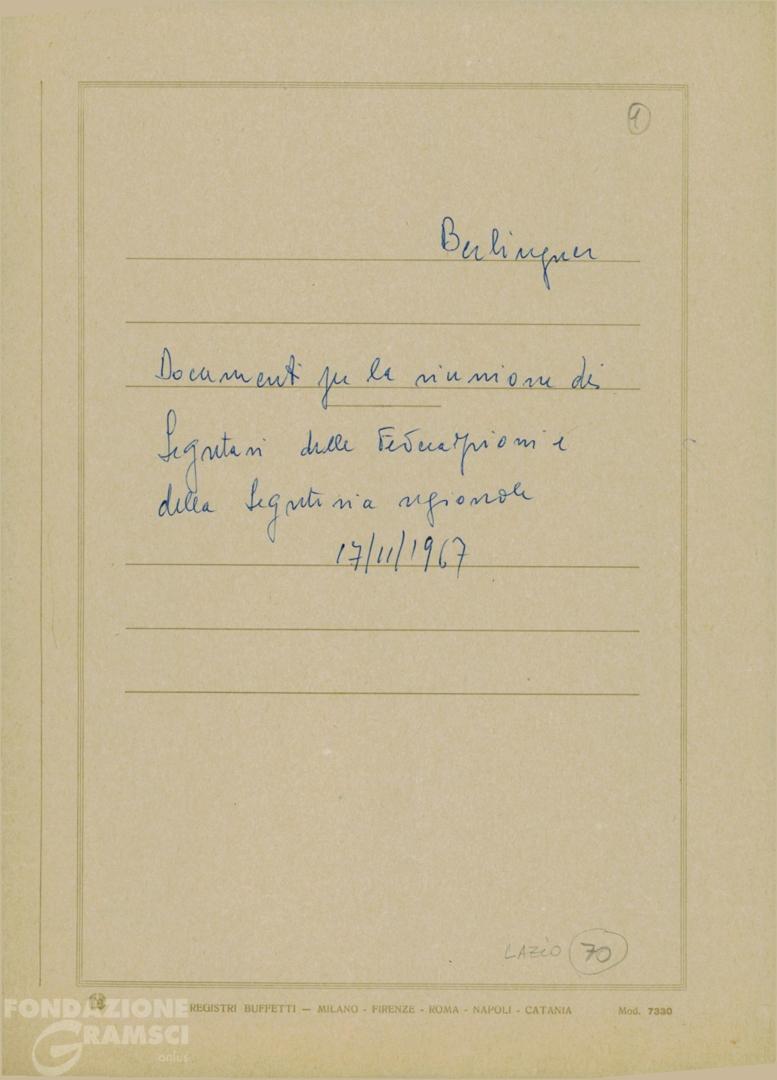 1
Berlinguer
Documenti per la riunione dei
Segretari delle Federazioni e
della Segreteria regionale
17/11/1967
LAZIO 70
REGISTRI BUFFETTI — MILANO - FIRENZE - ROMA - NAPOLI - CATANIA Mod. 7330
FONDAZIONE
GRAMSCI
onlus